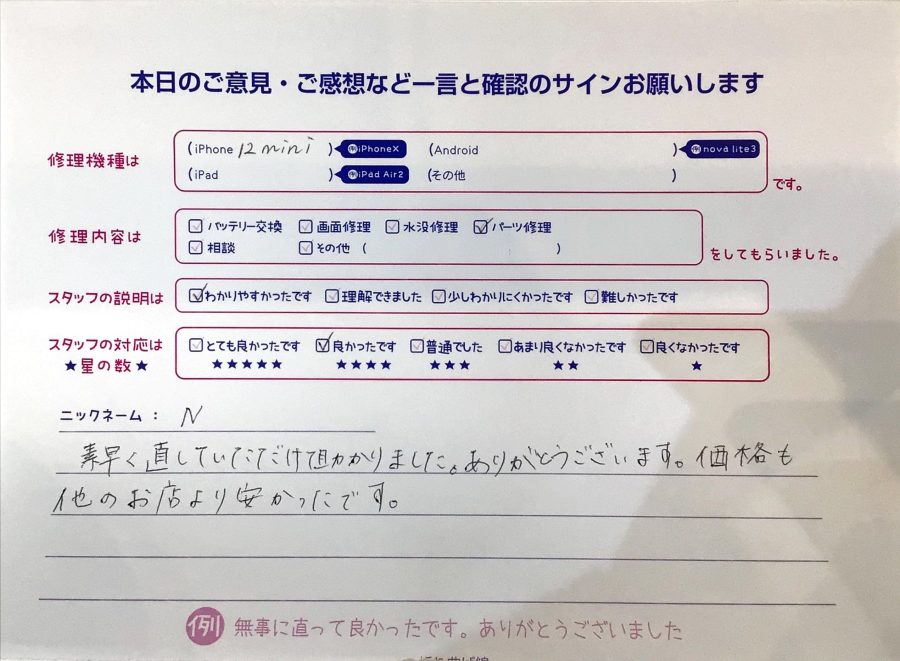 本日のご意見・ご感想など一言と確認のサインお願いします
修理機種は (iPhone 12 mini ) 例iPhoneX (Android ) 例nova lite3
(iPad ) 例iPad Air2 (その他 ) です。
修理内容は バッテリー交換 画面修理 水没修理 パーツ修理
相談 その他 ( ) をしてもらいました。
スタッフの説明は わかりやすかったです 理解できました 少しわかりにくかったです 難しかったです
スタッフの対応は とても良かったです 良かったです 普通でした あまり良くなかったです 良くなかったです
★星の数★ ★★★★★ ★★★★ ★★★ ★★ ★
ニックネーム： N
素早く直していただけ助かりました。ありがとうございます。価格も
他のお店より安かったです。
例 無事に直って良かったです。ありがとうございました